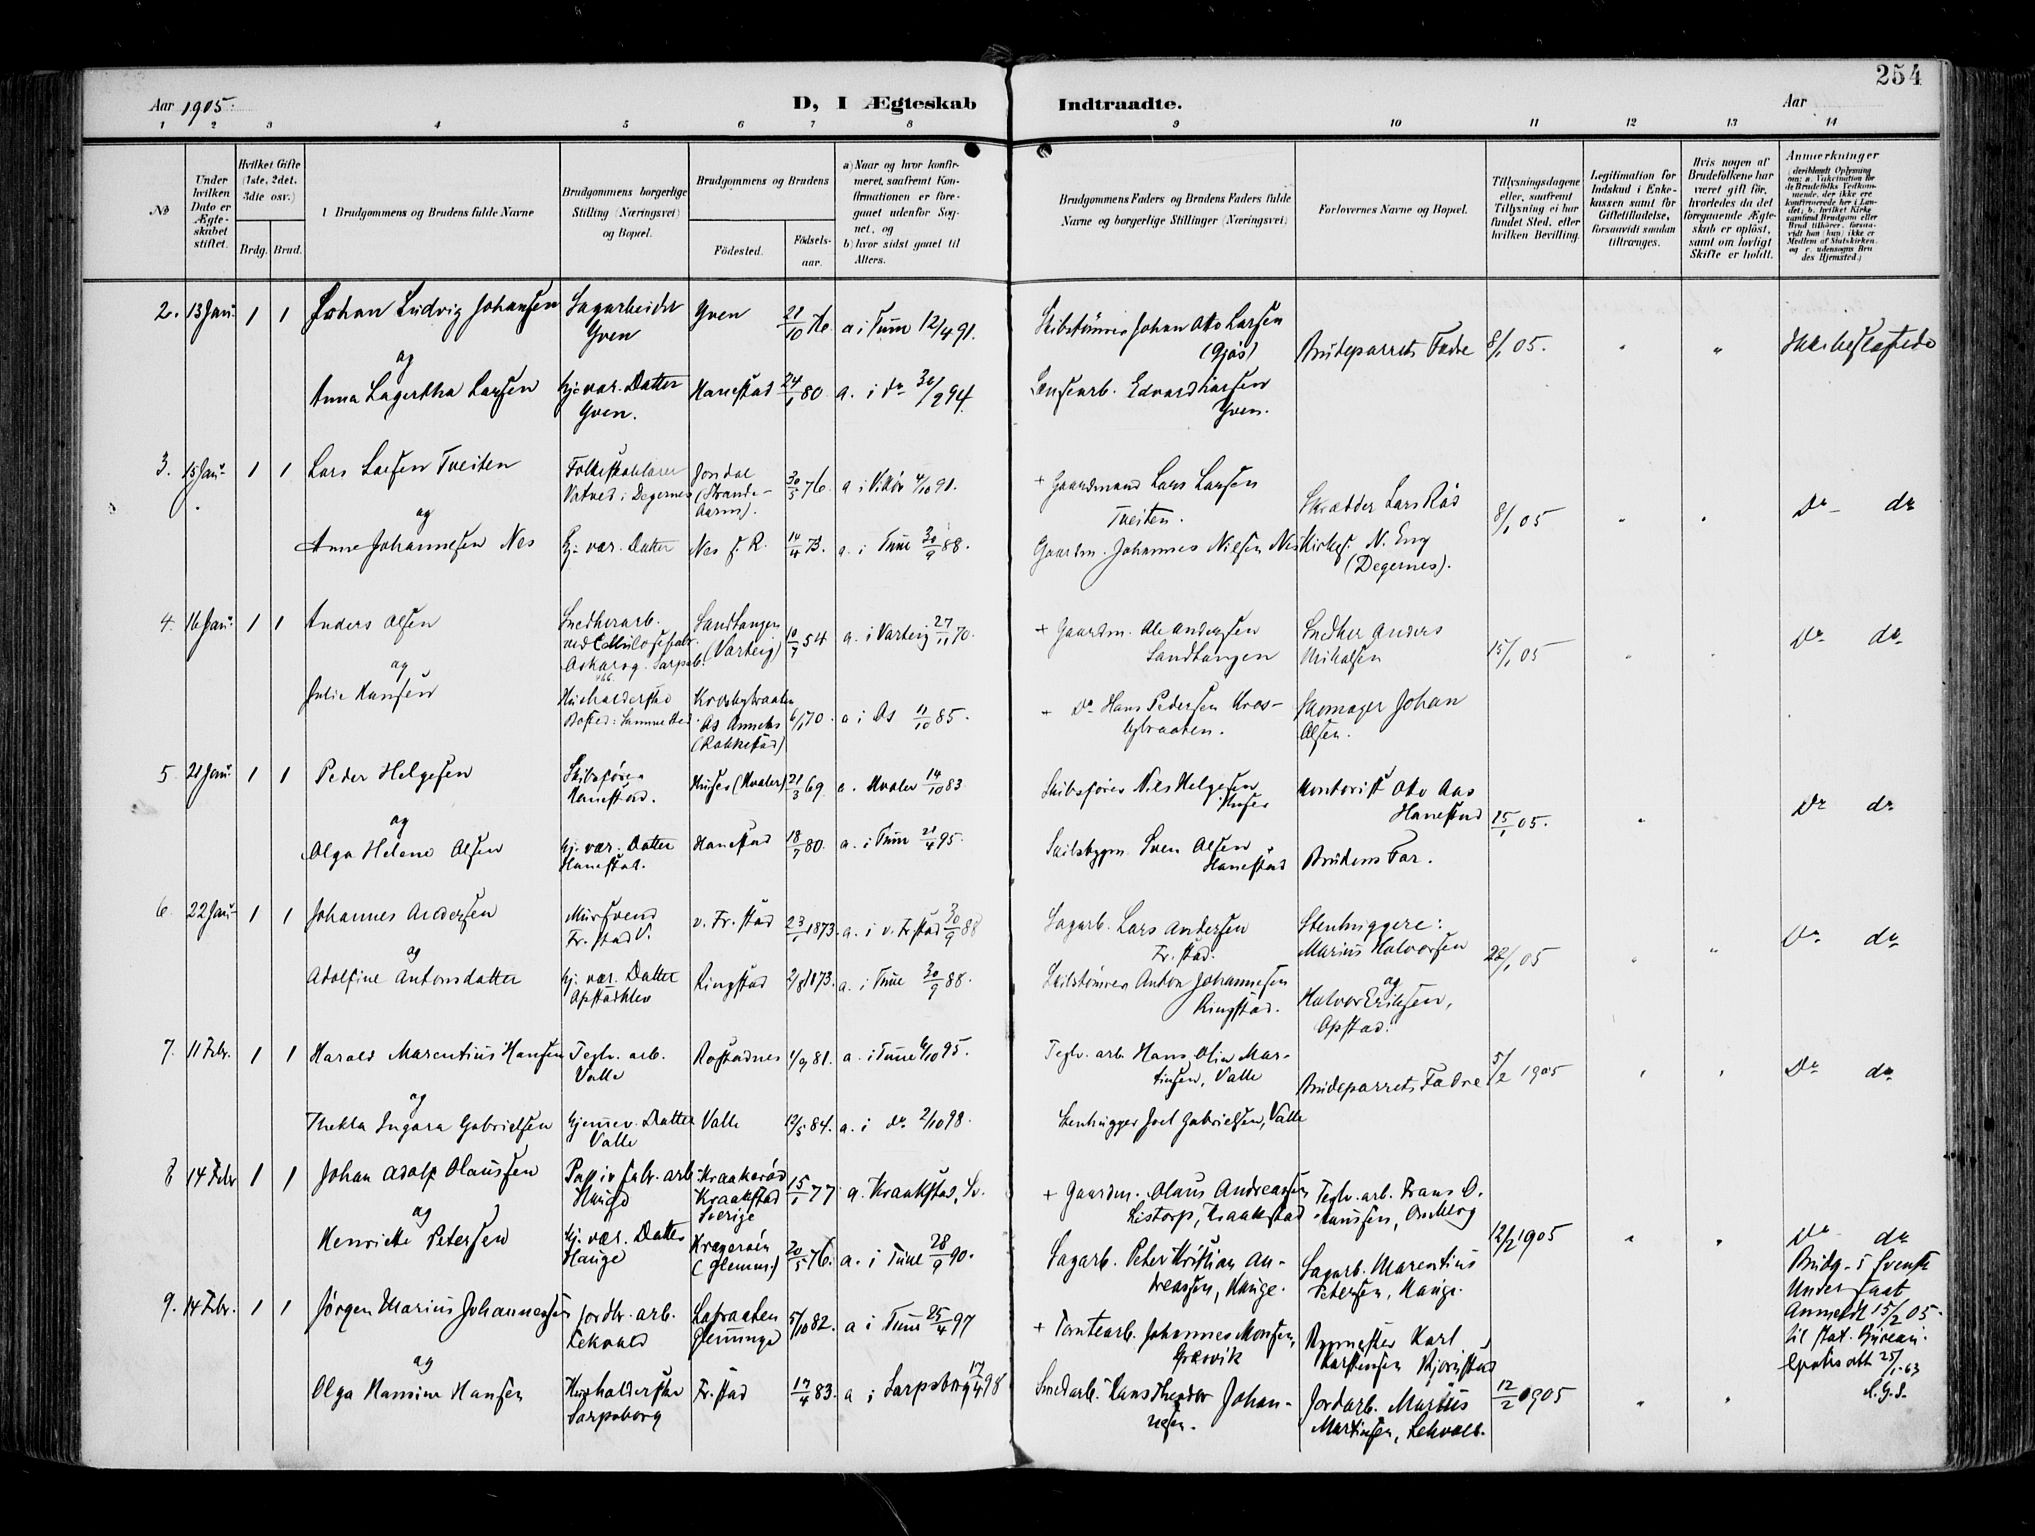 254
Aar 1905.
D, I Ægteskab Indtraadte.
Aar
1 2 3 4 5 6 7 8 9 10 11 12 13 14
No
Under hvilken Dato er Ægteskabet stiftet.
Hvilket Gifte (1ste, 2det, 3die osv.)
Brdg. Brud.
1 Brudgommens og Brudens fulde Navne
Brudgommens borgerlige Stilling (Næringsvei) og Bopæl.
Brudgommens og Brudens
Födested.
Födselsaar.
a) Naar og hvor konfirmeret, saafremt Konfirmationen er foregaaet udenfor Sognet, og
b) hvor sidst gaaet til Alters.
Brudgommens Faders og Brudens Faders fulde Navne og borgerlige Stillinger (Næringsvei)
Forlovernes Navne og Bopæl.
Tillysningsdagene eller, saafremt Tillysning ei har fundet Sted, efter hvilken Bevilling.
Legitimation for Indskud i Enkekassen samt for Giftetilladelse, forsaavidt saadan tiltrænges.
Hvis nogen af Brudefolkene har været gift för, hvorledes da det foregaaende Ægteskab er oplöst, samt om lovligt Skifte er holdt.
Anmerkninger
2. 13 Jan. 1 1 Johan Ludvig Johansen Sagarbeider Yven Yven 21/10 76 a i Tune 12/4 91. Skibstømrer Johan Otto Larsen (Gjøs) Brudeparrets Fædre 8/1 05. " " Ikke beslægtede
og
Anna Lagertha Larsen Hj. vær. Datter Yven. Hanestad 24/1 80 a. i do 30/9 94. Lænsearb. Edvard Larsen Yven.
3. 15 Jan. 1 1 Lars Larsen Tveiten Folkeskolelærer Vatvet i Degernes Jondal (Strandebarm). 30/5 76. a i Vikør 4/10 91. + Gaardmand Lars Larsen Tveiten. Skrædder Lars Rød 8/1 05 " " Do do
og
Anne Johannesen Nes Hj. vær. Datter Nes f. R. 10/4 73. a. i Tune 30/9 88. Gaardm. Johannes Nielsen Nes Kirkes. N. Eng (Degernes).
4. 16 Jan. 1 1 Anders Olsen Sandtangen (Varteig) 10/7 54 a. i Varteig 27/11 70. + Gaardm. Ole Andersen Sandtangen Anders Mikalsen 15/1 05 Do do
og
Julie Hansen Husholderske As Anneks (Rakkestad) 6/1 70. a i As 11/10 85. + Do Hans Pedersen Krosbybraaten. Skomager Johan Olsen.
5. 21 Jan. 1 1 Peder Helgesen Skibsfører Hanestad. Huser (Hvaler) 21/3 69. a. Hvaler 14/10 83 Skibsfører Nils Helgesen Huser Kontorist Otto Aas Hanestad 15/1 05. " Do do
og
Olga Helene Olsen Hj. vær. Datter Hanestad. Hanestad 18/7 80. a. i Tune 21/4 95. Skibsbygm. Sven Olsen Hanestad Brudens Far.
6. 22 Jan. 1 1 Johannes Andersen Mursvend Fr.stad V. v. Fr.stad 23/1 1873. a. i v. Frstad 30/9 88 Sagarb. Lars Andersen Fr.stad. Stenhuggere: Marius Halvorsen 22/1 05 " " Do do
og
Adolfine Antonsdatter Hj. vær. Datter Ringstad 2/8 1873. a. i Tune 30/9 88. Skibstømrer Anton Johannesen Ringstad. og Halvor Eriksen, Opstad.
7. 11 Febr. 1 1 Harald Marentius Hansen Teglv. arb. Valle Rostadnes 1/9 81. a. i Tune 6/10 95. Teglv. arb. Hans Olia Martinsen, Valle Brudeparrets Fædre 5/2 1905 " " Do do
og
Thekla Ingara Gabrielsen Hjemmev. Datter Valle Valle 12/5 84. a. i do 2/10 98. Stenhugger Joel Gabrielsen, Valle
8 14 Febr 1 1 Johan Adolf Olaussen Papirfabr. arb Hauge Kraakerød Kraakstad Sverige 15/1 77 a. Kraakstad, Sv. + Gaardm. Olaus Andreassen Listorp, Kraakstad Teglv. arb. Frans O. Hanssen, Omberg 12/2 1905 " " Do do
og
Henriette Petersen Hj. vær. Datter Hauge Kragerøen (Glemm.) 20/5 76. a. i Tune 28/9 90. Sagarb. Peter Kristian Andreassen, Hauge. Sagarb. Marentius Petersen, Hauge. Brudg. Svensk Undersaat Anmeldt 15/2 05. til stat. Bureau
9. 14 Febr. 1 1 Jørgen Marius Johannessen Jordbr. arb. Lekvold Labraaten Glemminge 5/10 82. a i Tune 25/4 97 + Tomtearb. Johannes Monsen, Græsvik Karl Karstensen 12/2 1905 " "
og
Olga Hansine Hansen Husholderske Sarpsborg Fr.stad 17/4 83. a i Sarpsborg 17/4 98 Smedarb. Hans Theodor Johannesen. Jordarb. Marius Martinsen, Lekvold.